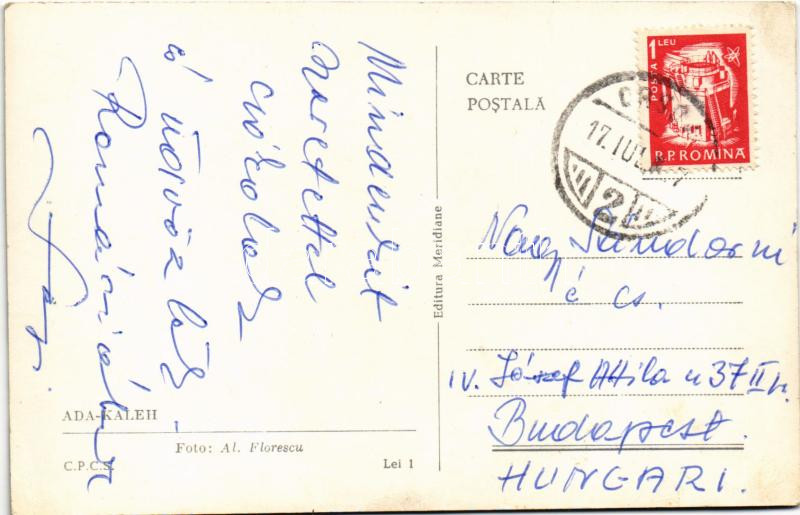 Mindenkit
szeretettel
csókolok
s üdvözlök
Romániából
ADA-KALEH
Foto: Al. Florescu
C.P.C.S.
Lei 1
Editura Meridiane
CARTE
POȘTALĂ
1 LEU
POSTA
R.P.ROMINA
17. IUL
2
Nagy Sándorné
é cs.
IV. József Attila u 37 II
Budapest.
HUNGARI.